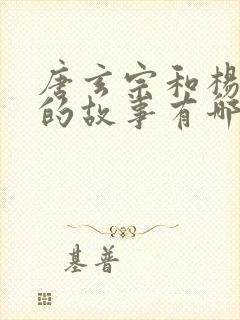 唐玄宗和杨
的故事有哪
基普